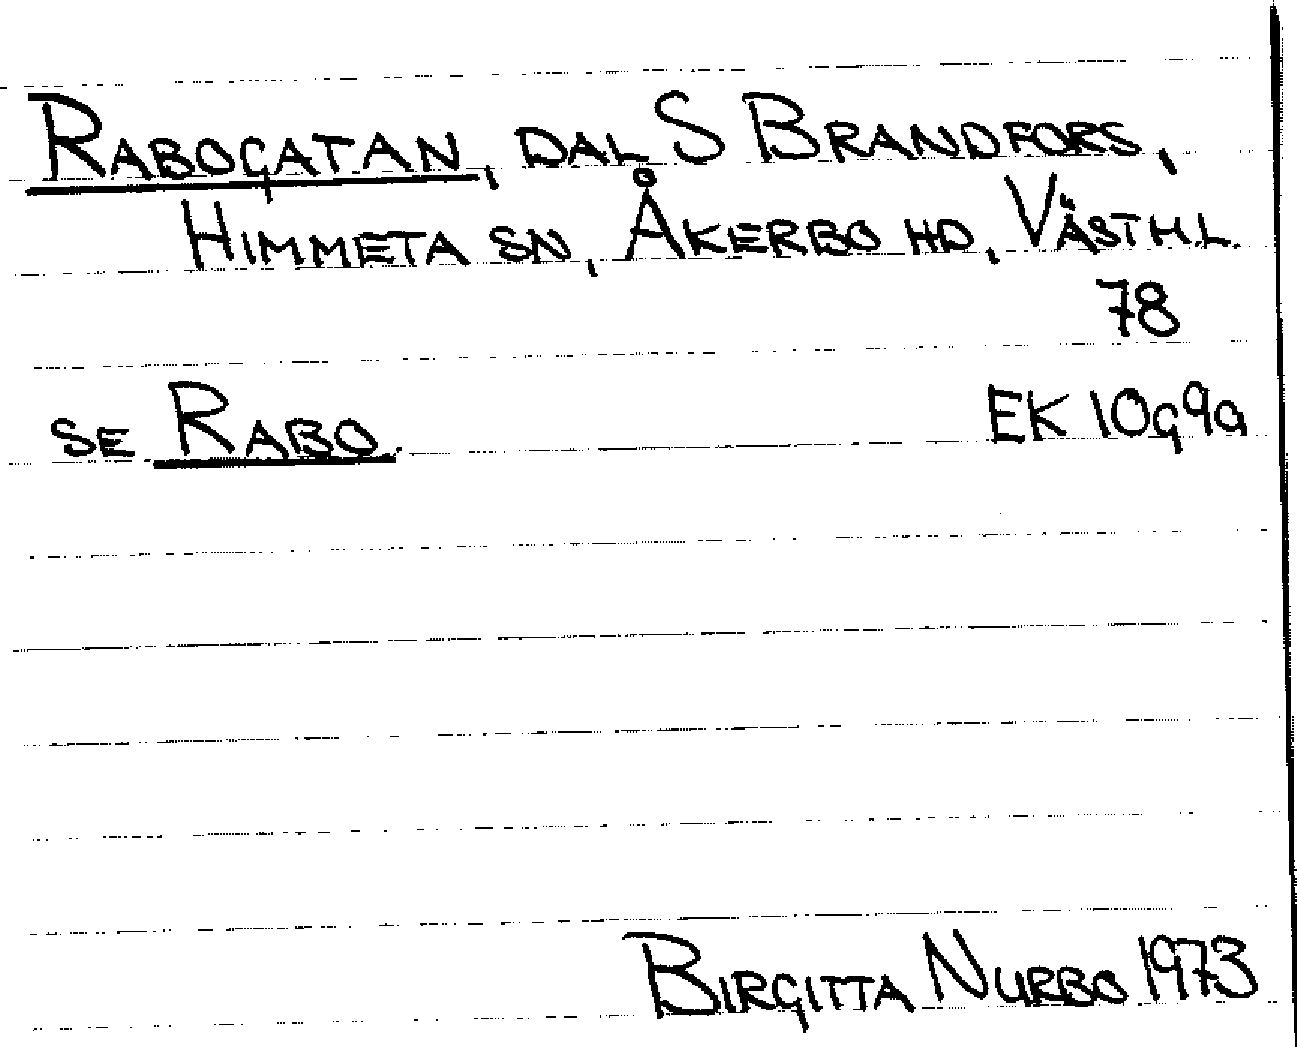 RABOGATAN, DAL S BRANDFORS,
HIMMETA SN, ÅKERBO HD, VÄSTML.
78
SE RABO. EK 10g9a
BIRGITTA NURBO 1973